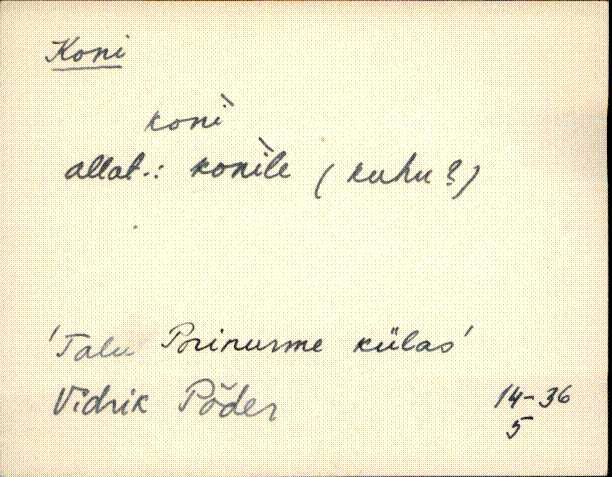 Koni
konì
allat.: konìle (kuhu?)
'Talu Prinurme külas'
Vidrik Põder
14-36
5